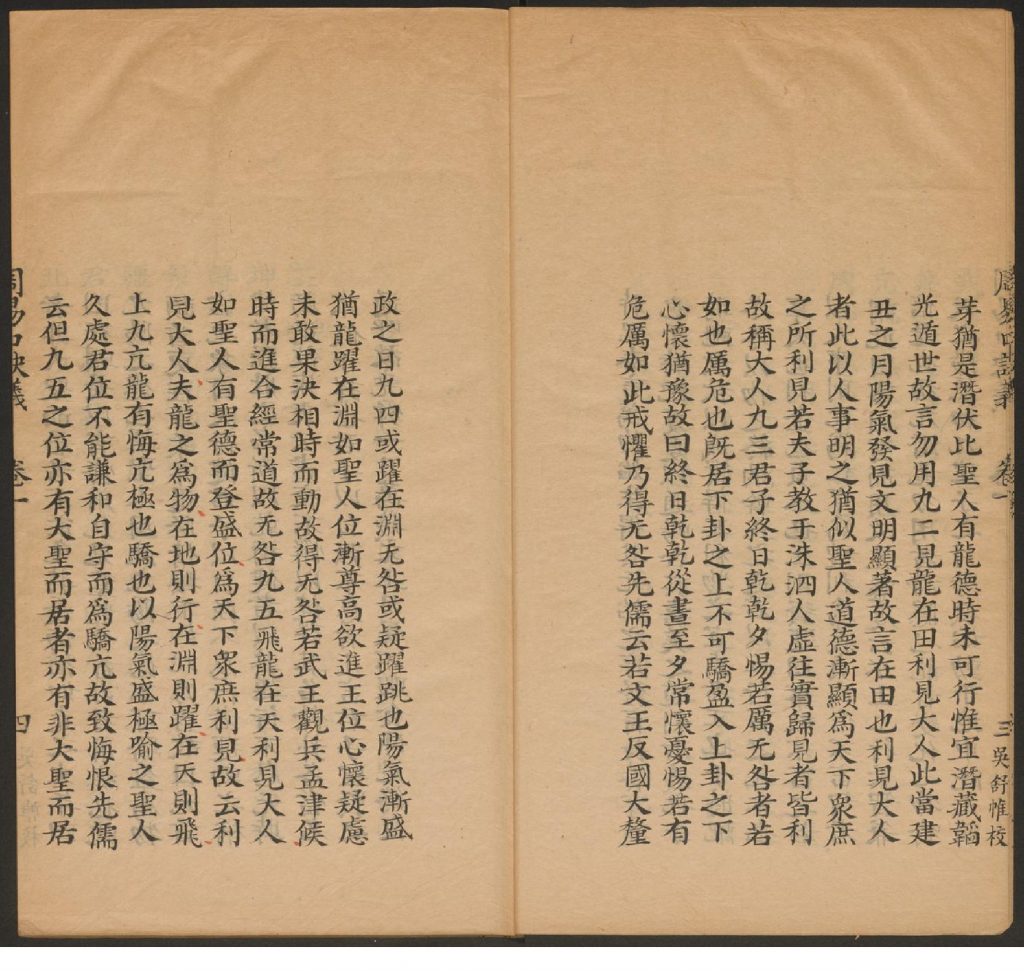 周易口訣義 卷一 三 吳舒帷校
芽猶是潛伏比聖人有龍德時未可行惟宜潛藏韜
光遁世故言勿用九二見龍在田利見大人此當建
丑之月陽氣發見文明顯著故言在田也利見大人
者此以人事明之猶似聖人道德漸顯為天下衆庶
之所利見若夫子教于洙泗人虛往實歸見者皆利
故稱大人九三君子終日乾乾夕惕若厲无咎者若
如也厲危也既居下卦之上不可驕盈入上卦之下
心懷猶豫故曰終日乾乾從晝至夕常懷憂惕若有
危厲如此戒懼乃得无咎先儒云若文王反國大釐
政之日九四或躍在淵无咎或疑躍跳也陽氣漸盛
猶龍躍在淵如聖人位漸尊高欲進王位心懷疑慮
未敢果決相時而動故得无咎若武王觀兵孟津候
時而進合經常道故无咎九五飛龍在天利見大人
如聖人有聖德而登盛位為天下衆庶利見故云利
見大人夫龍之為物在地則行在淵則躍在天則飛
上九亢龍有悔亢極也驕也以陽氣盛極喻之聖人
久處君位不能謙和自守而為驕亢故致悔恨先儒
云但九五之位亦有大聖而居者亦有非大聖而居
周易口訣義 卷一 四